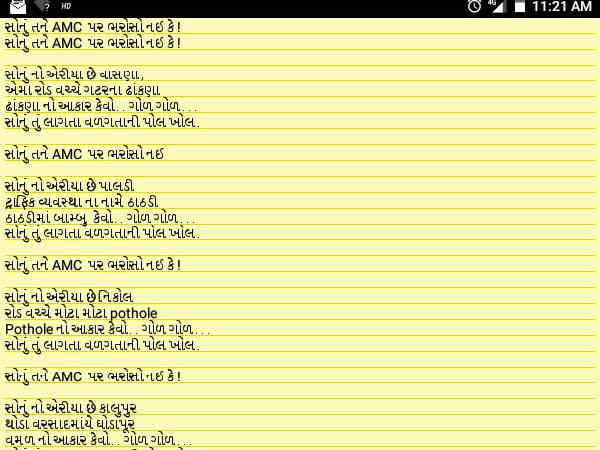 ? HD 4G 11:21 AM
સોનું તને AMC પર ભરોસો નઈ કે !
સોનું તને AMC પર ભરોસો નઈ કે !
સોનું નો એરીયા છે વાસણા,
એમાં રોડ વચ્ચે ગટરના ઢાંકણા
ઢાંકણા નો આકાર કેવો. . ગોળ ગોળ. . .
સોનું તું લાગતા વળગતાની પોલ ખોલ.
સોનું તને AMC પર ભરોસો નઈ
સોનું નો એરીયા છે પાલડી
ટ્રાફિક વ્યવસ્થા ના નામે ઠાઠડી
ઠાઠડીમાં બામ્બુ કેવો. . ગોળ ગોળ. . .
સોનું તું લાગતા વળગતાની પોલ ખોલ.
સોનું તને AMC પર ભરોસો નઈ કે !
સોનું નો એરીયા છે નિકોલ
રોડ વચ્ચે મોટા મોટા pothole
Pothole નો આકાર કેવો. . ગોળ ગોળ. . .
સોનું તું લાગતા વળગતાની પોલ ખોલ.
સોનું તને AMC પર ભરોસો નઈ કે !
સોનું નો એરીયા છે કાલુપુર
થોડા વરસાદમાંયે ઘોડાપૂર
વમળ નો આકાર કેવો. . ગોળ ગોળ. . .